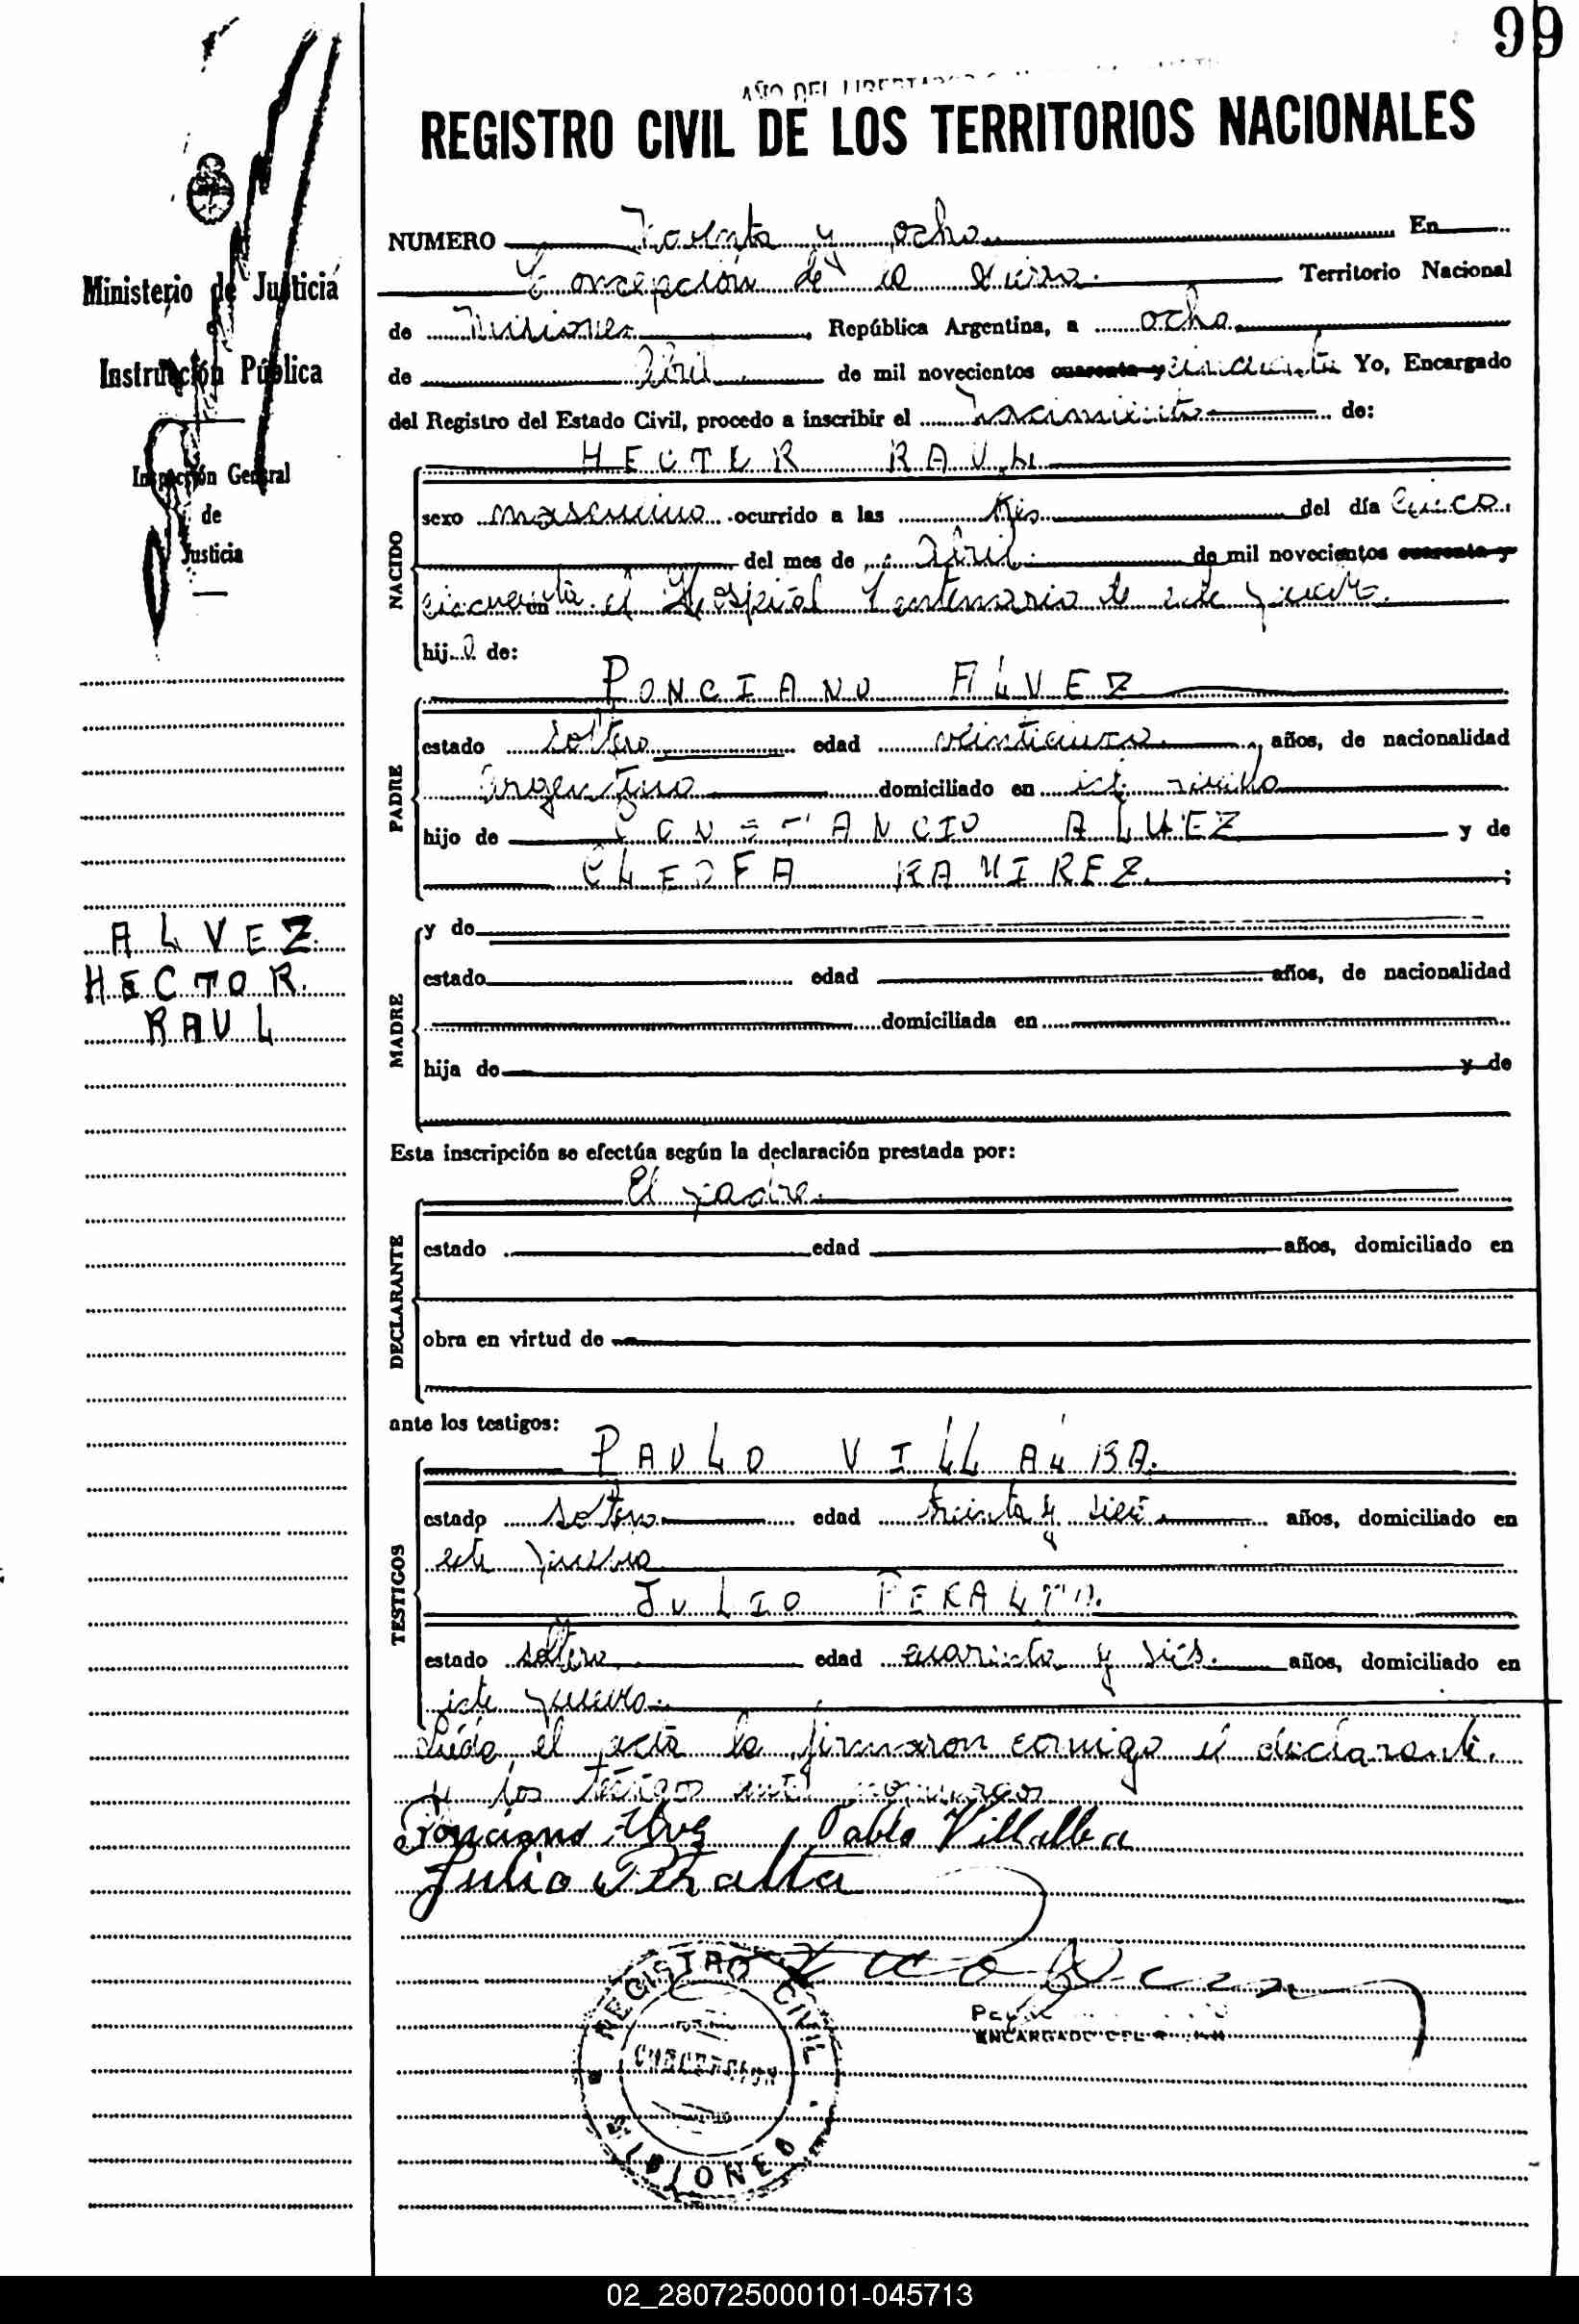 99
AÑO DEL LIBERTADOR
REGISTRO CIVIL DE LOS TERRITORIOS NACIONALES
Ministerio de Justicia
Instrucción Pública
Inspección General
de
Justicia
ALVEZ
HECTOR
RAUL
NUMERO Noventa y ocho En
Concepción de la Sierra. Territorio Nacional
de Misiones, República Argentina, a ocho
de Abril de mil novecientos cuarenta y cincuenta Yo, Encargado
del Registro del Estado Civil, procedo a inscribir el Nacimiento de:
NACIDO
HECTOR RAUL
sexo masculino ocurrido a las tres del día cinco
del mes de Abril de mil novecientos cuarenta y
cincuenta en el Hospital Centenario de este pueblo.
hijo de:
PADRE
PONCIANO ALVEZ
estado soltero edad veinticinco, años, de nacionalidad
argentino domiciliado en este pueblo
hijo de CONSTANCIO ALVEZ y de
CLEOFA RAMIREZ;
MADRE
y de
estado edad años, de nacionalidad
domiciliada en
hija de y de
Esta inscripción se efectúa según la declaración prestada por:
DECLARANTE
El padre.
estado edad años, domiciliado en
obra en virtud de
ante los testigos:
TESTIGOS
PABLO VILLALBA.
estado soltero edad treinta y siete años, domiciliado en
este pueblo
JULIO PERALTA.
estado soltero edad cuarenta y seis. años, domiciliado en
este pueblo.
Leída el acta la firmaron conmigo el declarante.
y los testigos
Ponciano Alvez Pablo Villalba
Julio Peralta
REGISTRO CIVIL
CONCEPCION
MISIONES
ENCARGADO DEL
02_280725000101-045713